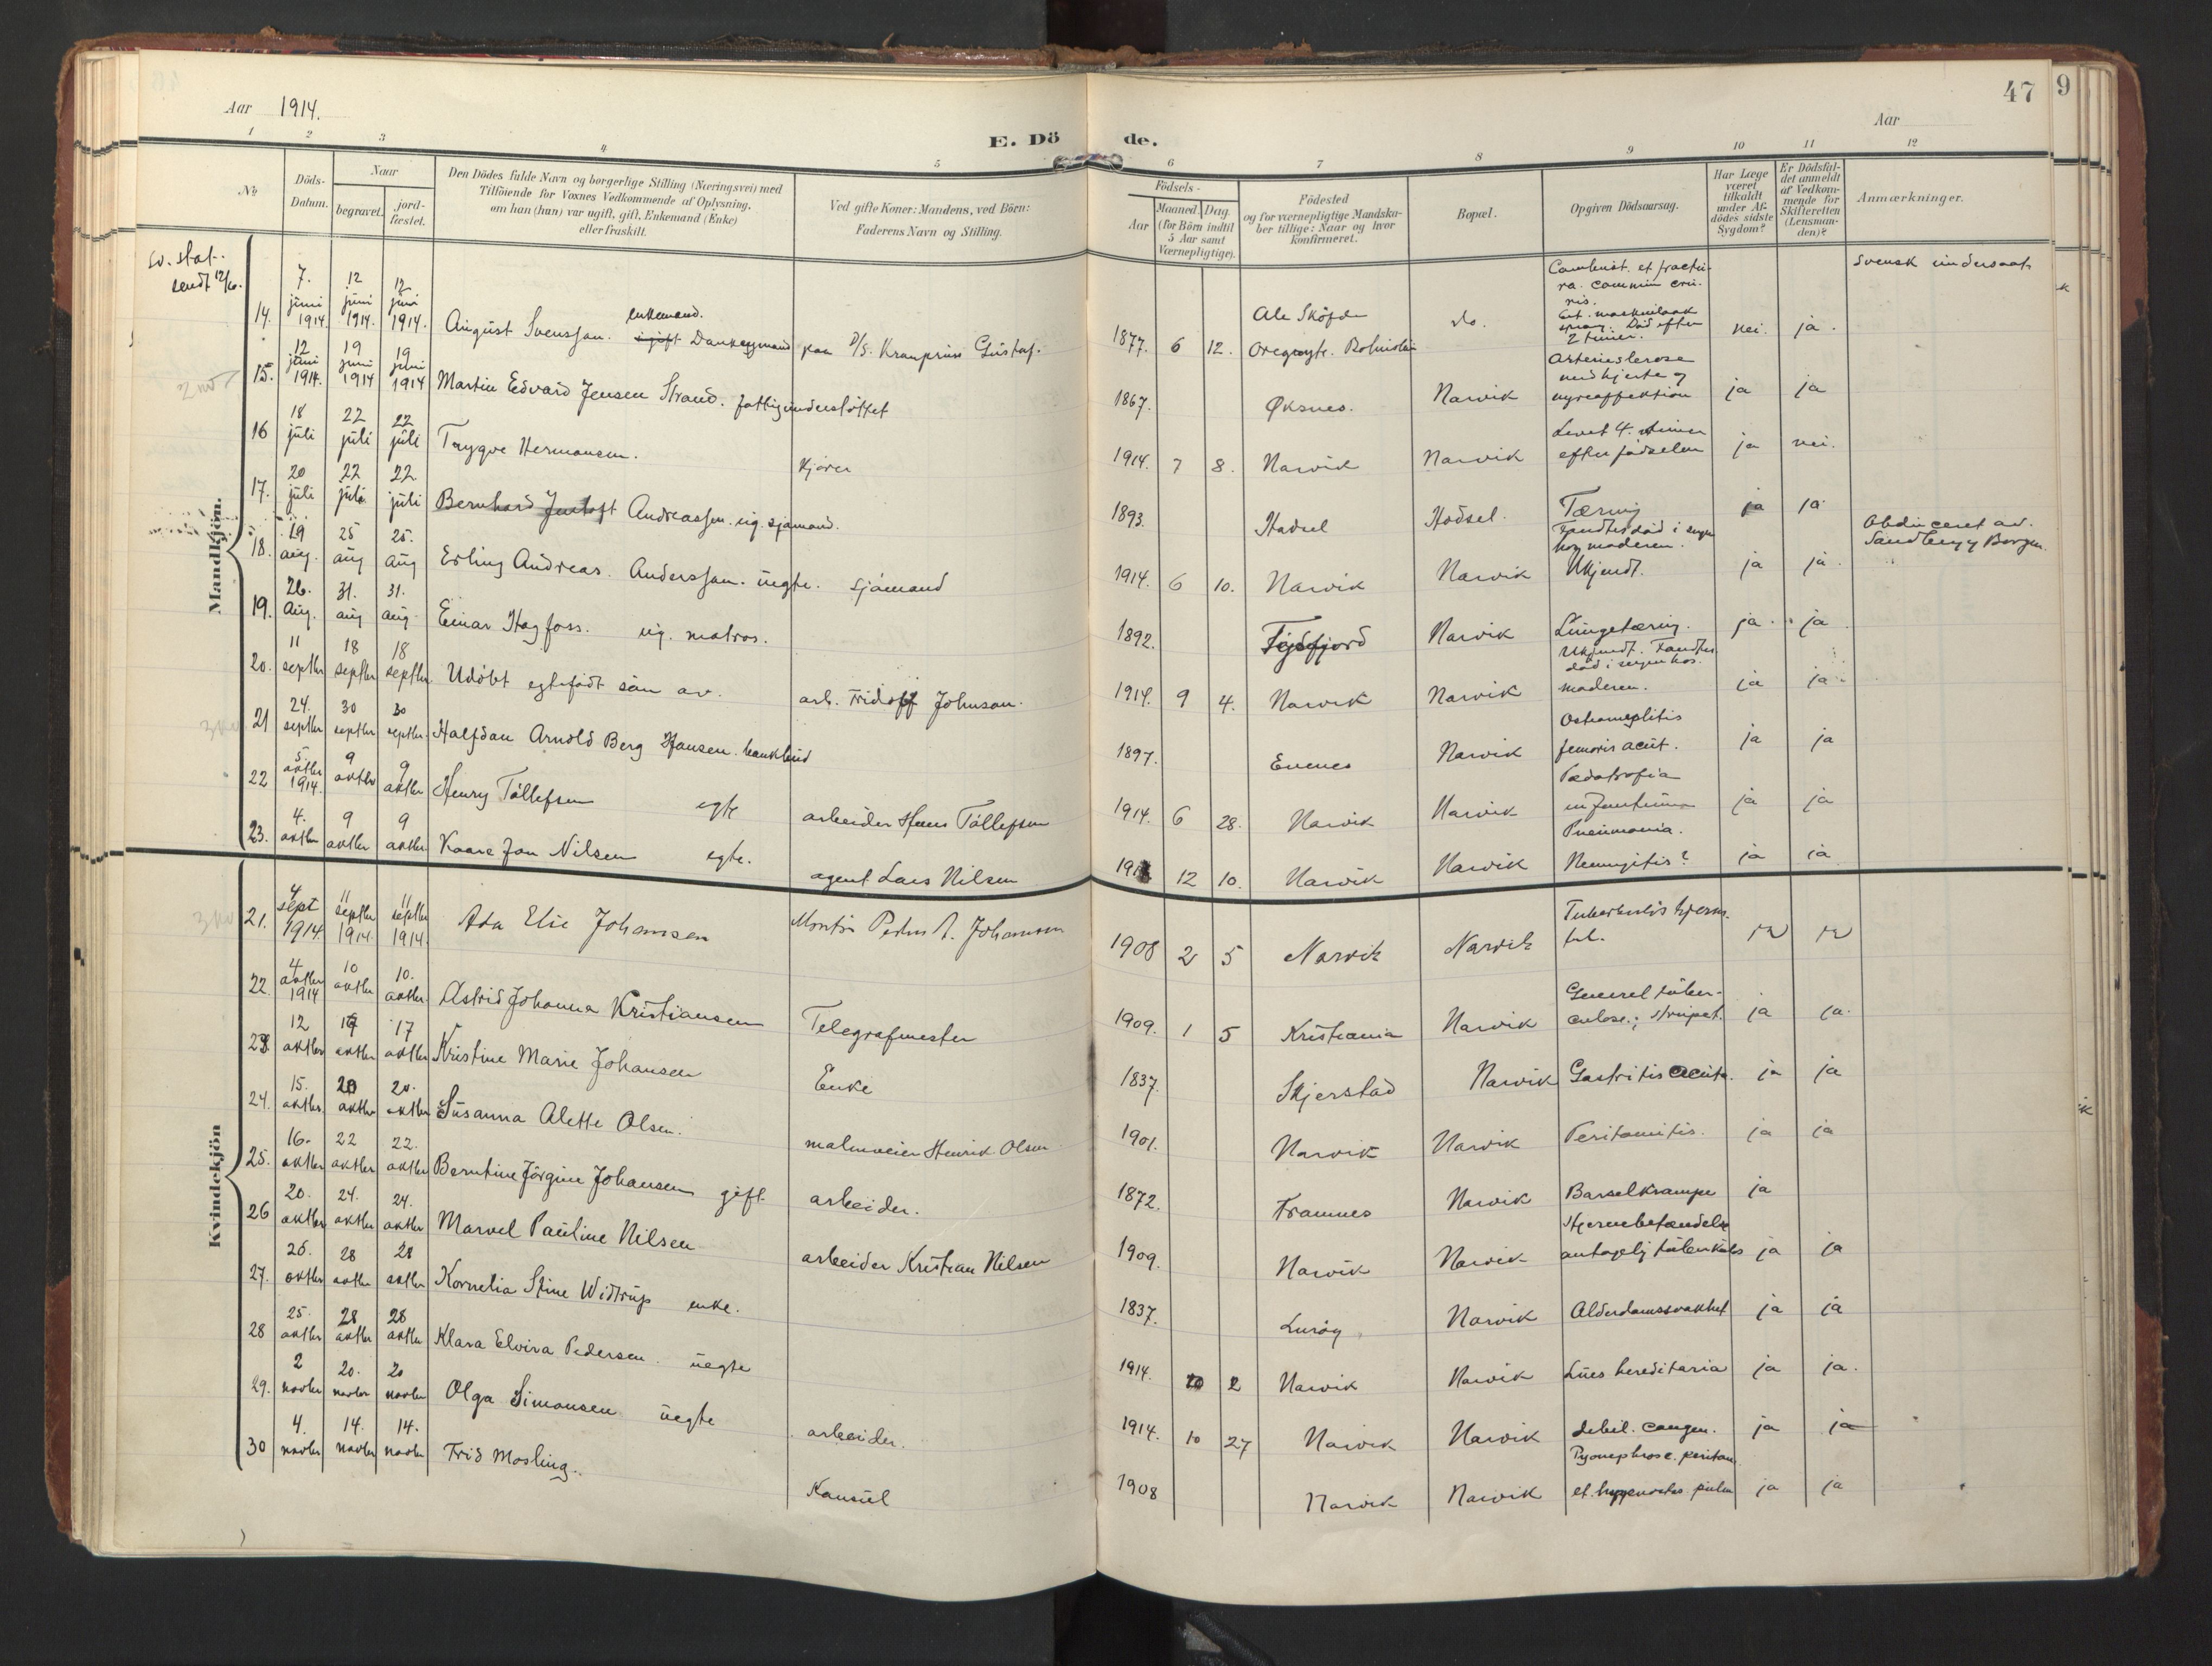 Aar 1914.
E. Döde.
47
9
Aar
1 2 3 4 5 6 7 8 9 10 11 12
No
Döds-Datum.
Naar
begravet.
jord-fæstet.
Den Dödes fulde Navn og borgerlige Stilling (Næringsvei) med
Tilföiende for Voxnes Vedkommende af Oplysning,
om han (hun) var ugift, gift, Enkemand (Enke)
eller fraskilt.
Ved gifte Koner: Mandens, ved Börn:
Faderens Navn og Stilling.
Födsels-
Aar
Maaned. Dag.
(for Börn indtil
5 Aar samt
Værnepligtige).
Födested
og for værnepligtige Mandska-
ber tillige: Naar og hvor
konfirmeret.
Bopæl.
Opgiven Dödsaarsag.
Har Læge
været
tilkaldt
under Af-
dödes sidste
Sygdom?
Er Dödsfal-
det anmeldt
af Vedkom-
mende for
Skifteretten
(Lensman-
den)?
Anmærkninger.
Mandkjön.
sv. stat.
sendt 12/10.
14. 7. juni 1914 12 juni 1914. 12 juni 1914. August Svensson. enkemand. paa D/S. Kronprins Gustaf. 1877. 6 12. do. 2 timer. nei. ja. Svensk undersaat
15. 12 juni 1914. 19 juni 1914 19 juni 1914 Martin Edvard Jensen Strand. fattigunderstöttet 1867. Øksnes. Narvik med hjerte og nyreaffektion ja ja
16 18 juli 22 juli 22 juli Trygve Hermansen. Kjører 1914. 7 8. Narvik Narvik Levet 4. timer efter födselen ja nei.
17. 20 juli 22 juli 22 juli Bernhard Jentoft Andreassen. ug. sjømand. 1893. Hadsel Hadsel. Tæring ja ja
18. 19 aug. 25 aug 25. aug Erling Andreas Anderssen. uegte. sjømand 1914. 6 10. Narvik Narvik Fandtes död i sengen hos moderen. Ukjendt. ja ja.
19. 26. aug. 31. aug 31. aug Einar Hagfoss. ug. matros. 1892. Narvik Lungetæring. ja ja
20. 11 septbr 18 septbr 18 septbr. Udöbt egtefödt sön av. arb. Fridoff Johnson. 1914. 9 4. Narvik Narvik Ukjendt. Fandtes död i sengen hos moderen. ja ja
21 24. septbr 30 septbr 30 septbr. Halfdan Arnold Berg Hansen. bankbud 1897. Evenes Narvik femoris acut. ja ja
22 5. oktbr 1914. 9 oktbr 9 oktbr Henry Tollefsen egte arbeider Hans Tollefsen 1914. 6 28. Narvik Narvik Pædatrofia infantum ja ja
23. 4. oktbr 9 oktbr 9 oktbr. Kaare Jon Nilsen egte. agent Lars Nilsen 12 10. Narvik Narvik Pneumonia. Meningitis? ja ja
Kvindekjön
21. 4 sept 1914. 11 septbr 1914 11 septbr 1914. Ada Elie Johansen Johansen 1908 2 5 Narvik Narvik ja ja
22. 4 oktbr 1914 10 oktbr 10. oktbr. Astrid Johanna Kristiansen Telegrafmester 1909. 1 5 Kristiania Narvik Generel tuberculose.; strupet. ja ja.
23. 12 oktbr 17 oktbr 17 oktbr Kristine Marie Johansen Enke 1837. Skjerstad Narvik Gastritis acuta. ja ja
24. 15. oktbr. 20 oktbr 20. oktbr Susanna Alette Olsen. malmveier Henrik Olsen 1901. Narvik Narvik Peritonitis. ja ja
25. 16. oktbr 22 oktbr 22. oktbr Berntine Jörgine Johansen gift arbeider. 1872. Framnes Narvik Barselkrampe ja
26 20. oktbr 24. oktbr 24. oktbr Marvel Pauline Nilsen arbeider Kristian Nilsen 1909. Narvik Narvik Hjernebetændelse antagelig tuberkuløs ja ja
27. 26. oktbr 28 oktbr 28 oktbr Kornelia Stine Widtrup enke. 1837. Lurøy Narvik Alderdomssvakhet ja ja
28 25. oktbr 28 oktbr 28 oktbr Klara Elvira Pedersen. uegte 1914. 10 2 Narvik Narvik Lues hereditaria ja ja.
29. 2 novbr 20. novbr 20 novbr Olga Simonsen uegte arbeider. 1914. 10 27 Narvik Narvik debil. congen. ja ja
30 4. novbr 14. novbr 14. novbr Frid Mosling. Konsul 1908 Narvik Narvik Pyonephrose. periton. ja ja